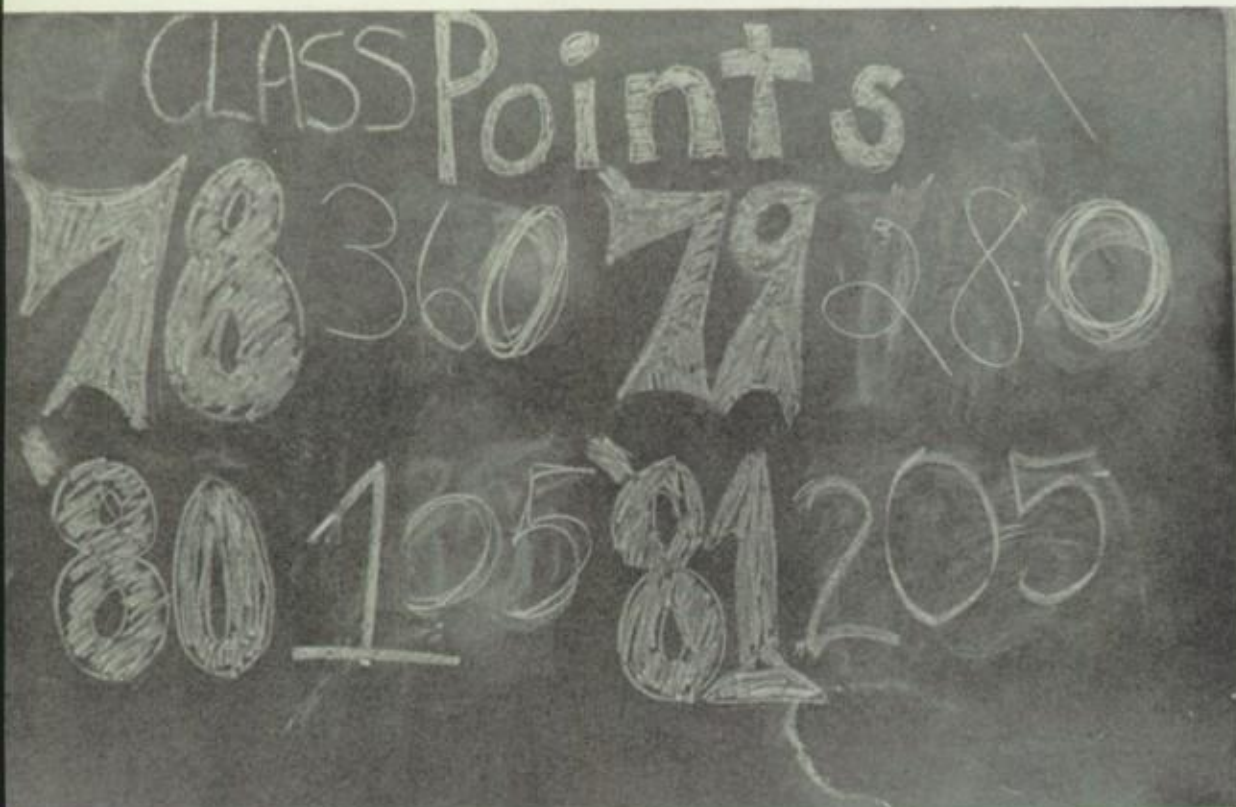 CLASS Points
78 360 79 280
80 105 81 205